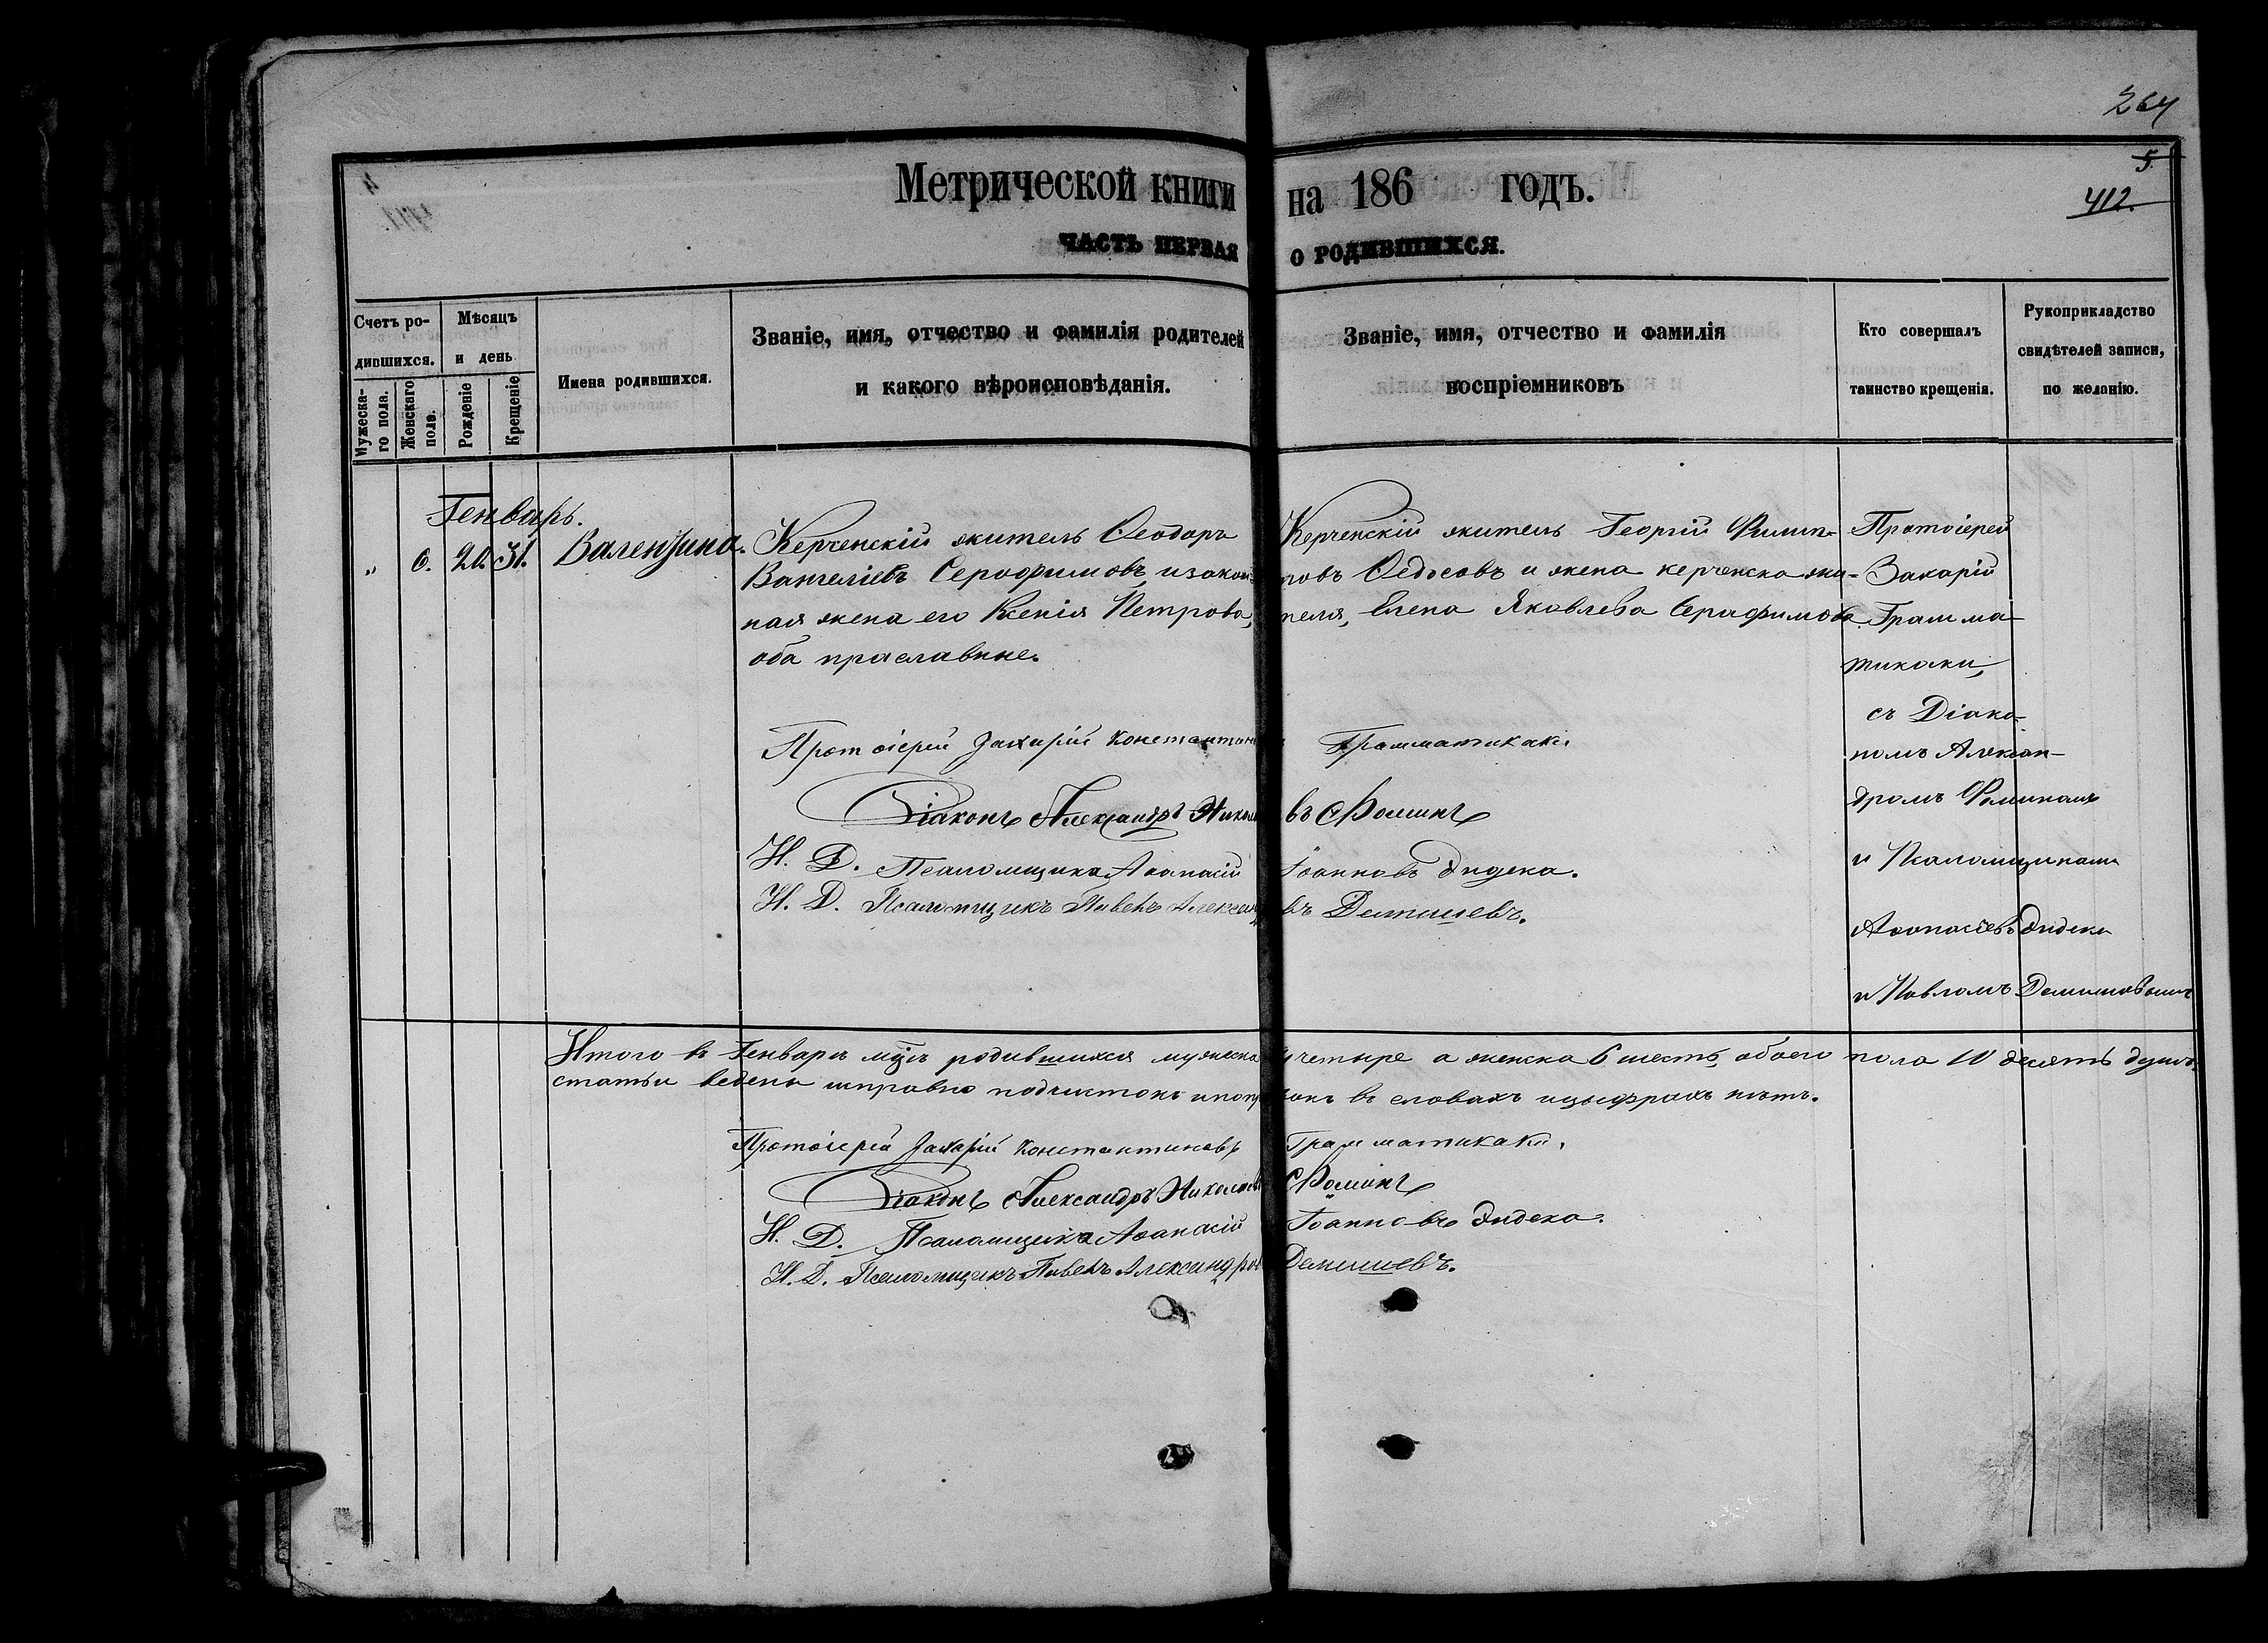 264
5.
412.
Метрической книги на 186 годъ.
ЧАСТЬ ПЕРВАЯ О РОДИВШИХСЯ.
Счетъ родившихся.
Мужескаго пола.
Женскаго пола.
Мѣсяцъ и день
Рожденіе
Крещеніе
Имена родившихся.
Званіе, имя, отчество и фамилія родителей
и какого вѣроисповѣданія.
Званіе, имя, отчество и фамилія
воспріемниковъ
Кто совершалъ
таинство крещенія.
Рукоприкладство
свидѣтелей записи,
по желанію.
Генварь.
„ 6. 20. 31. Валентина.
Керченскій житель Ѳеодоръ
Вангеліевъ Серофимовъ, изакон-
ная жена его Ксенія Петрова,
оба праславные.
Керченскій житель Георгій Филип-
повъ Ѳедосовъ и жена керченска жи-
теля, Елена Яковлева Серафимова
Протоіерей
Захарій
Грамма-
тикаки,
съ Діако-
номъ Алексан-
дромъ Фоминымъ
и Псаломщиками
Аѳанасіевъ Дидека
и Павломъ Демишевымъ
Протоіерей Захарій Константинов Грамматикаки
Діаконъ Александръ Николаевъ Фоминъ
И. Д. Псаломщика Аѳанасій Іоанновъ Дидека.
И. Д. Псаломщикъ Павелъ Александ въ Демишевъ.
Итого въ Генварѣ мцѣ родившихся мужеска 4 четыре а женска 6 шесть, обоего пола 10 десять душъ.
статьи ведены исправно подчистокъ ипоправокъ въ словахъ ицыфрахъ нѣтъ.
Протоіерей Захарій Константиновъ Грамматикаки.
Діаконъ Александръ Николаевъ Фоминъ
И. Д. Псаломщика Аѳанасій Іоанновъ Дидека.
И. Д. Псаломщикъ Павелъ Александров Демишевъ.